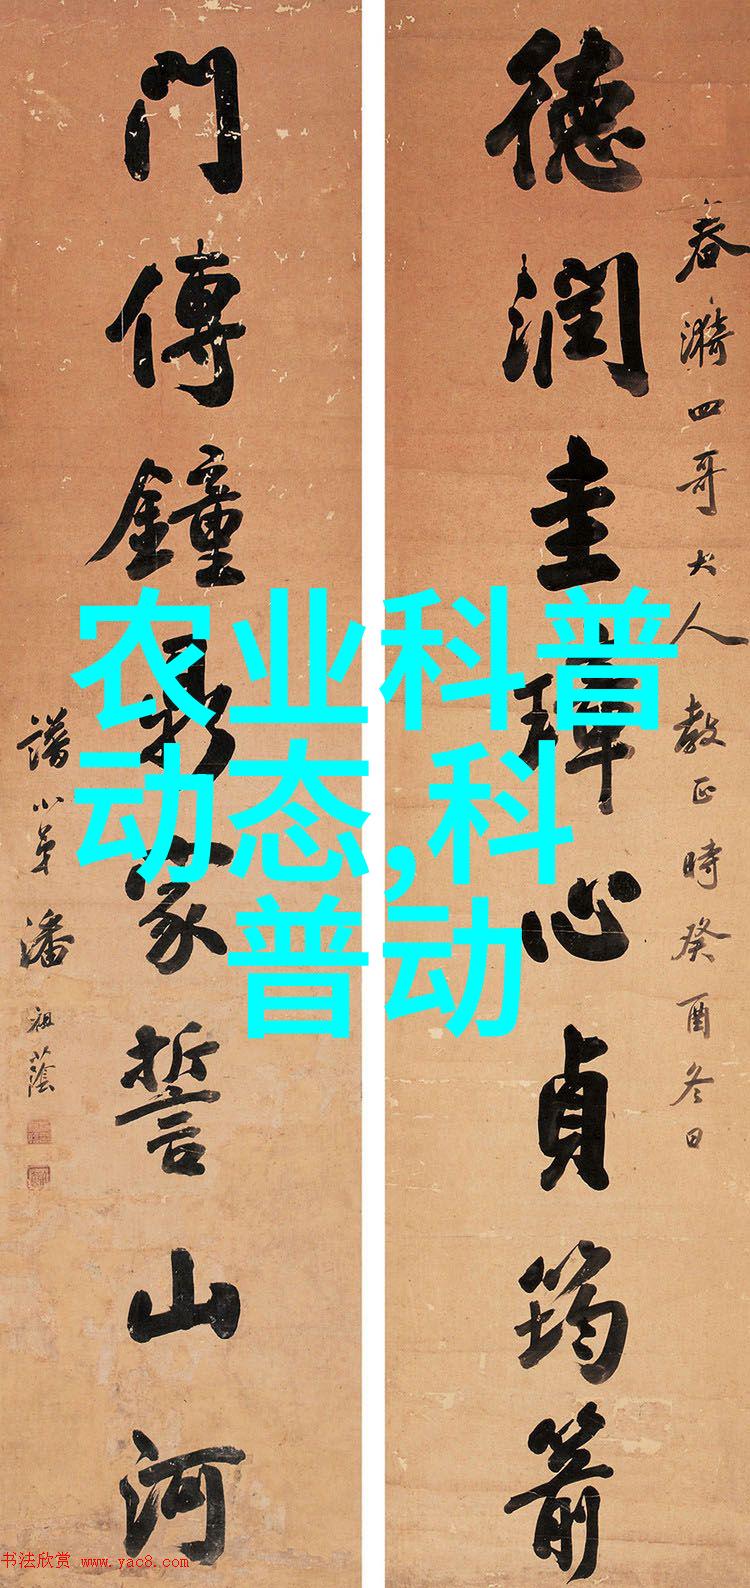 春漪四哥大人教正時癸酉冬日
德潤圭璋心貞筠箭
門傳鐘鼎家誓山河
譜小弟潘祖蔭
农业科普
动态,科
普动
书法欣赏 www.yac8.com